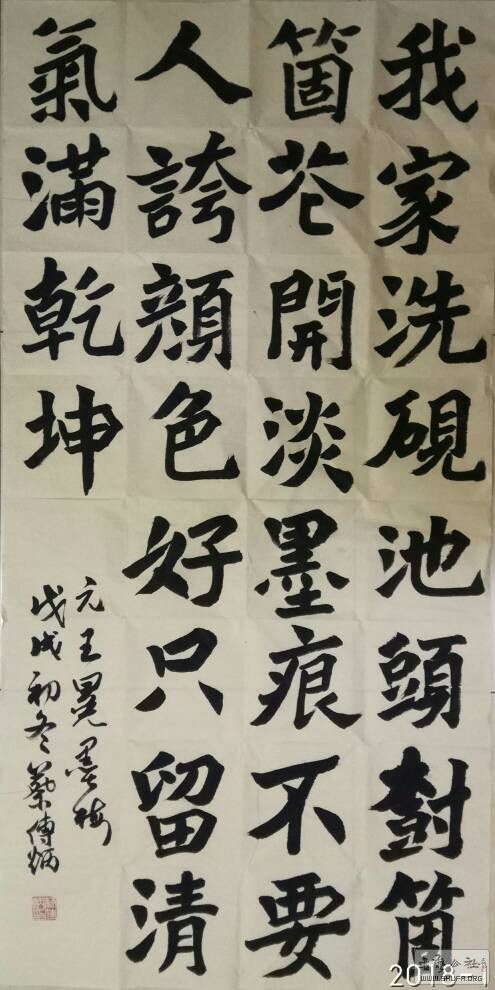 我家洗硯池頭樹箇
箇花開淡墨痕不要
人誇顏色好只留清
氣滿乾坤
元王冕墨梅
戊戌初冬蔡傳炳
2018